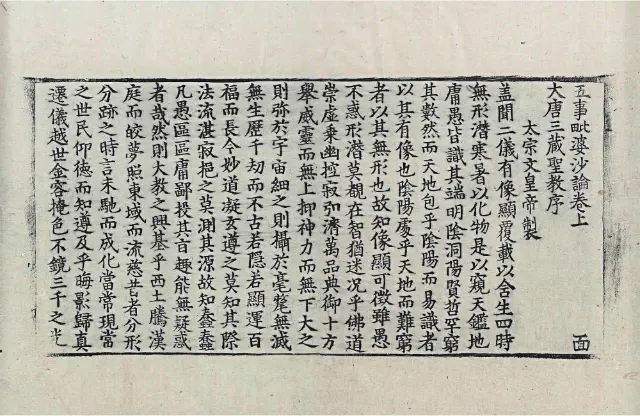 五事毗婆沙論卷上 面
大唐三藏聖教序
太宗文皇帝製
蓋聞二儀有像顯覆載以含生四時
無形潛寒暑以化物是以窺天鑑地
庸愚皆識其端明陰洞陽賢哲罕窮
其數然而天地包乎陰陽而易識者
以其有像也陰陽處乎天地而難窮
者以其無形也故知像顯可徵雖愚
不惑形潛莫覩在智猶迷況乎佛道
崇虛乗幽控寂弘濟萬品典御十方
舉威靈而無上抑神力而無下大之
則弥於宇宙細之則攝於毫氂無滅
無生歷千劫而不古若隱若顯運百
福而長今妙道凝玄遵之莫知其際
法流湛寂挹之莫測其源故知蠢蠢
凡愚區區庸鄙投其旨趣能無疑惑
者哉然則大教之興基乎西土騰漢
庭而皎夢照東域而流慈昔者分形
分跡之時言未馳而成化當常現當
之世民仰德而知遵及乎晦影歸真
遷儀越世金容掩色不鏡三千之光